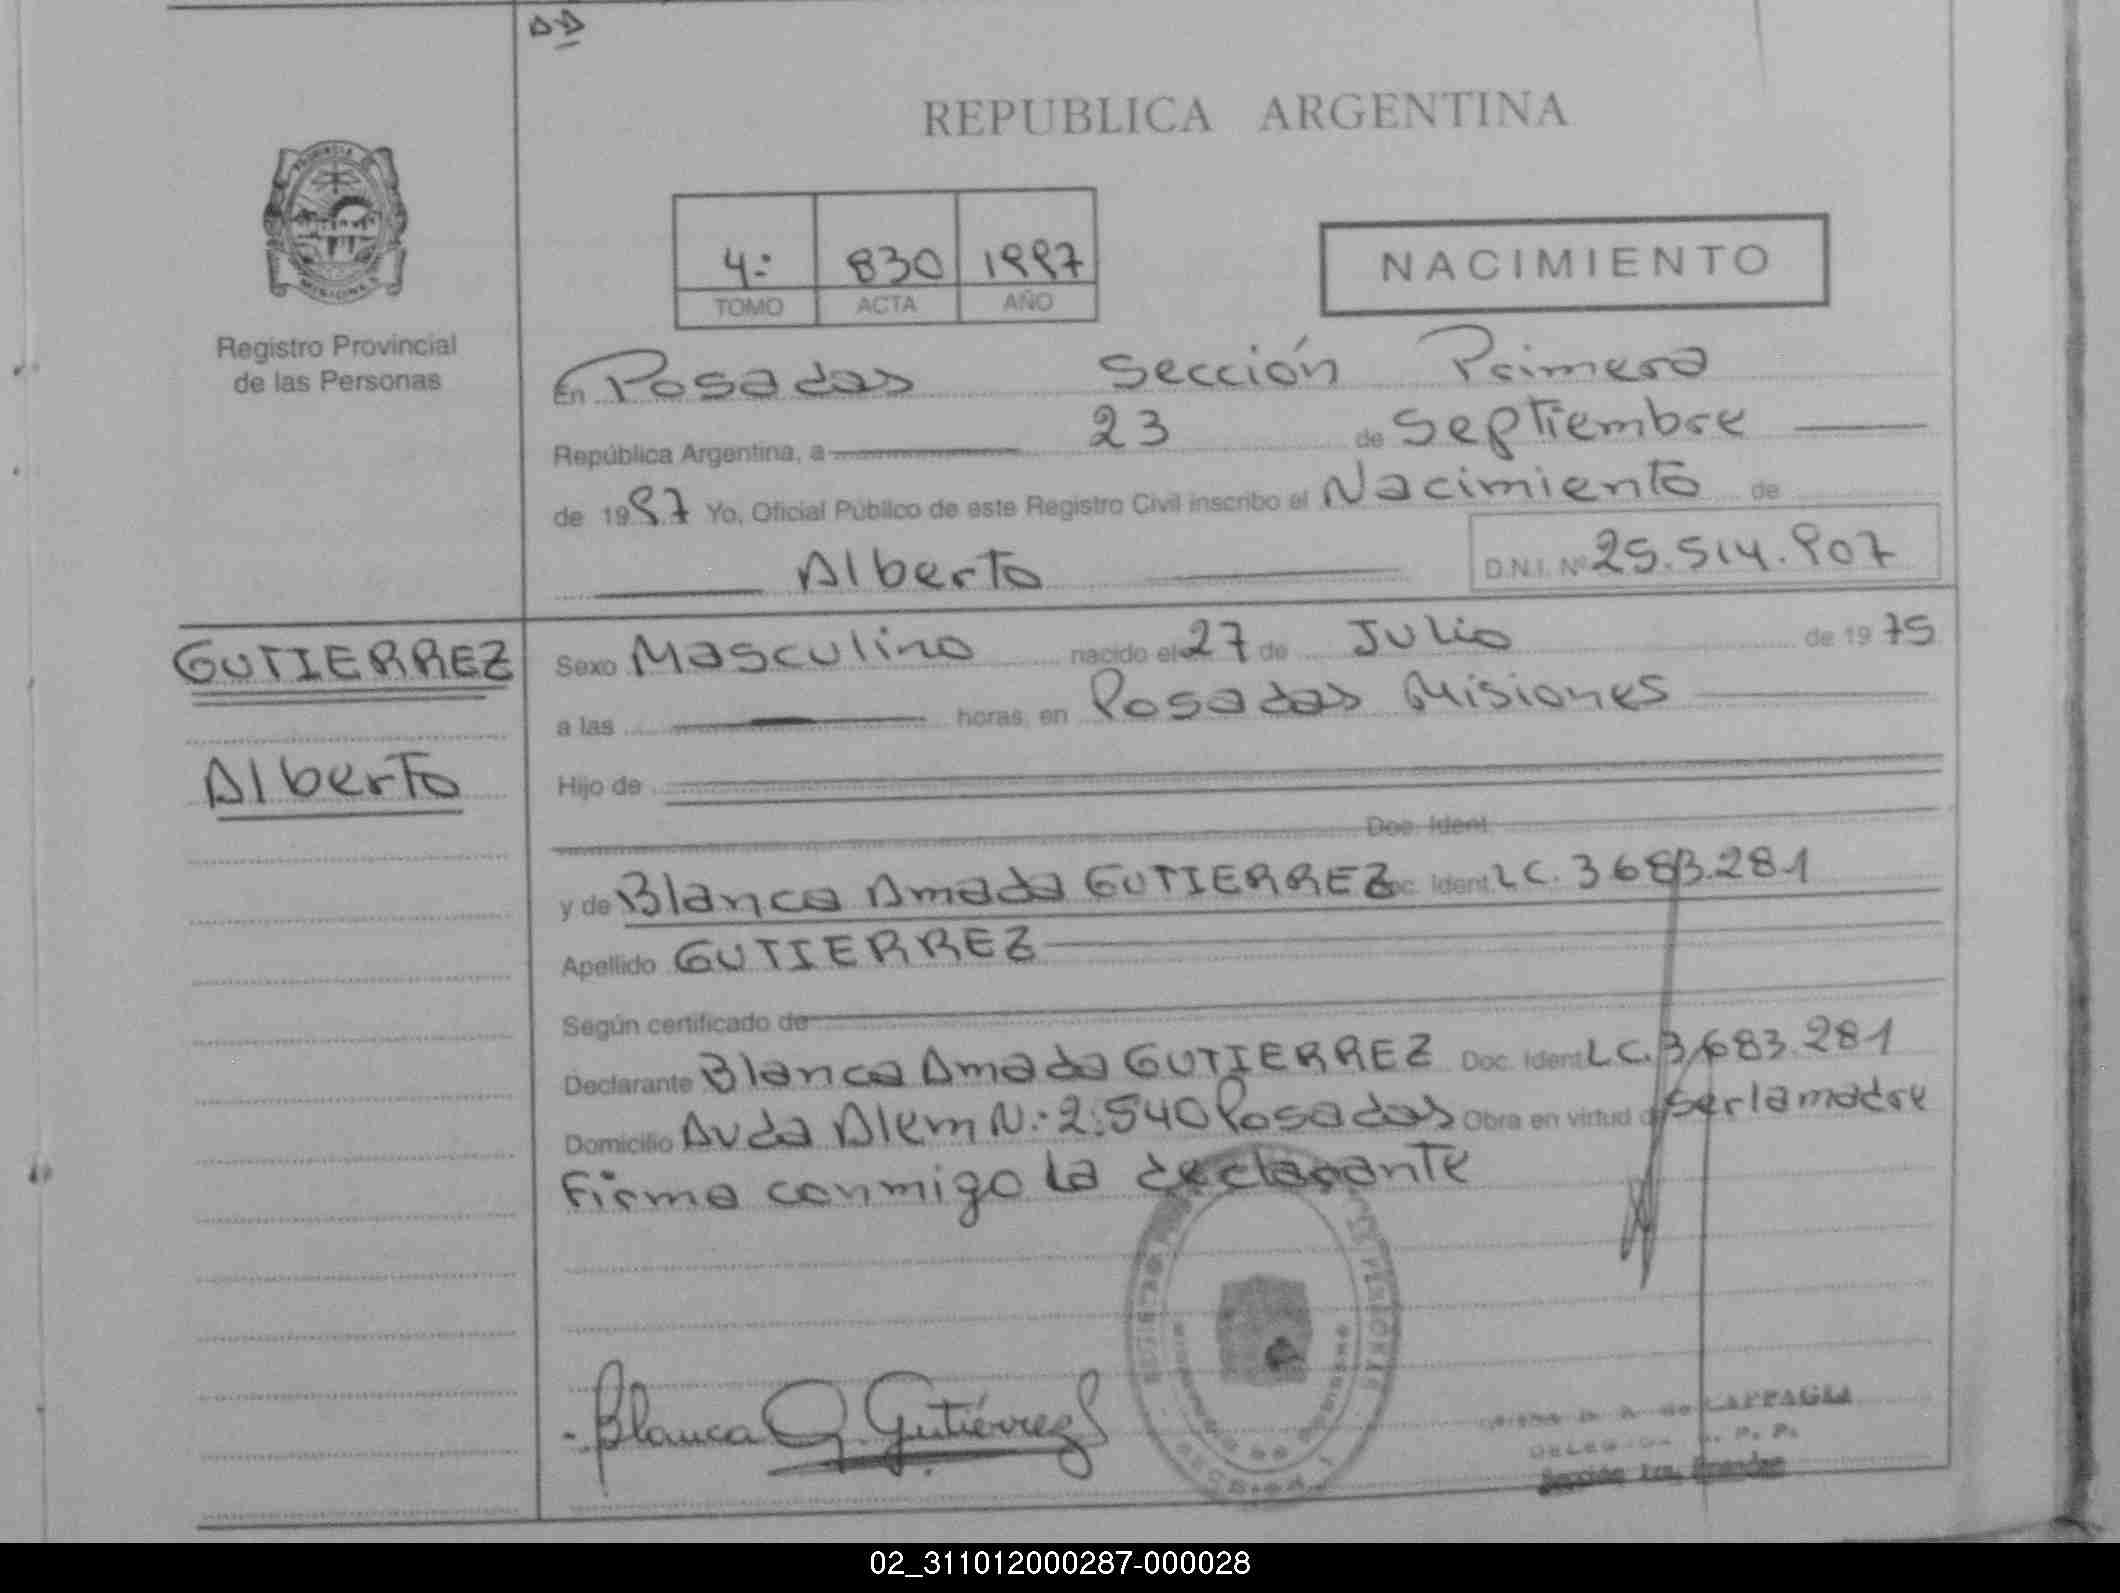 REPUBLICA ARGENTINA
PROVINCIA
MISIONES
Registro Provincial
de las Personas
4º 830 1997
TOMO ACTA AÑO
NACIMIENTO
En Posadas Sección Primera
República Argentina, a 23 de Septiembre
de 1997 Yo, Oficial Público de este Registro Civil inscribo el Nacimiento de
Alberto D.N.I. Nº 25.514.907
GUTIERREZ
Alberto
Sexo Masculino nacido el 27 de Julio de 1975
a las horas, en Posadas Misiones
Hijo de
Doc. Ident.
y de Blanca Amada GUTIERREZ Doc. Ident. LC. 3683.281
Apellido GUTIERREZ
Según certificado de
Declarante Blanca Amada GUTIERREZ Doc. Ident LC. 3683.281
Domicilio Avda Alem N.º 2.540 Posadas Obra en virtud de ser la madre
Firma conmigo la declarante
Blanca A. Gutiérrez
02_311012000287-000028